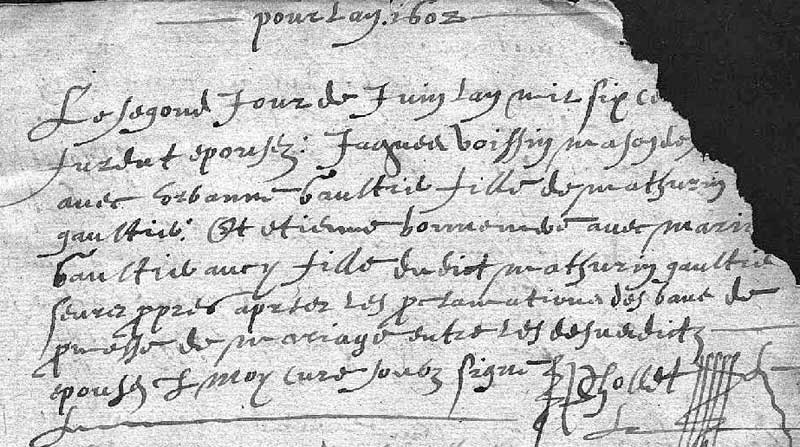 pour lan 1602
Le segond Jour de Juin lan mil six ce
furent epousez Jaques Voissin masson de
avec Urbanne Gaultier fille de mathurin
gaultier Et etienne bonnemere avec marie
Gaultier aucy fille dudict mathurin gaultier
seurs ppres apres les pclamations des bans de
pmesse de mariage entre les desusdictz
epousez Et moy Cure soubz signe Chollet